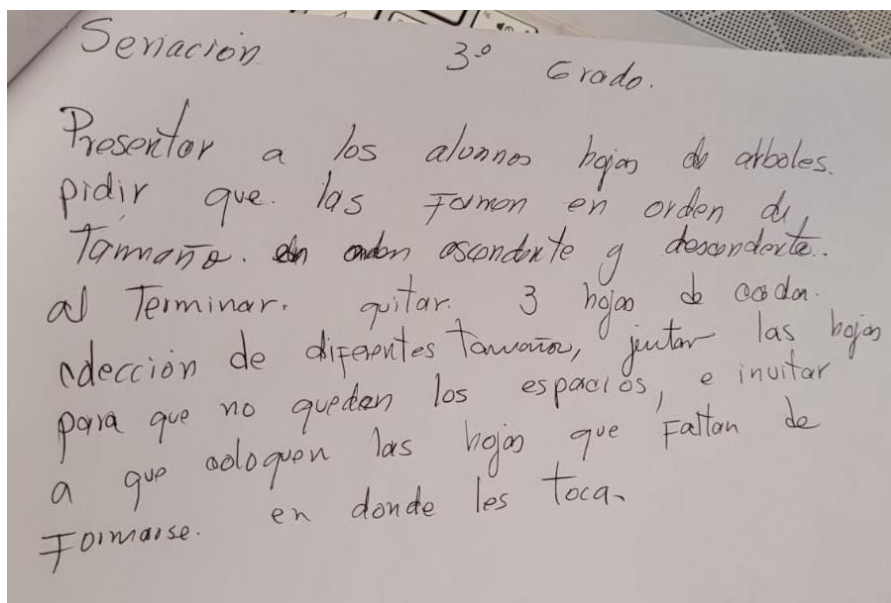 Seriación 3.º Grado.
Presentar a los alumnos hojas de arboles.
pidir que. las Formen en orden de,
Tamaño. en orden ascendente y descendente.
al Terminar. quitar. 3 hojas de cada.
colección de diferentes Tamaños, juntar las hojas
para que no queden los espacios, e invitar
a que coloquen las hojas que Faltan de
Formarse. en donde les toca.